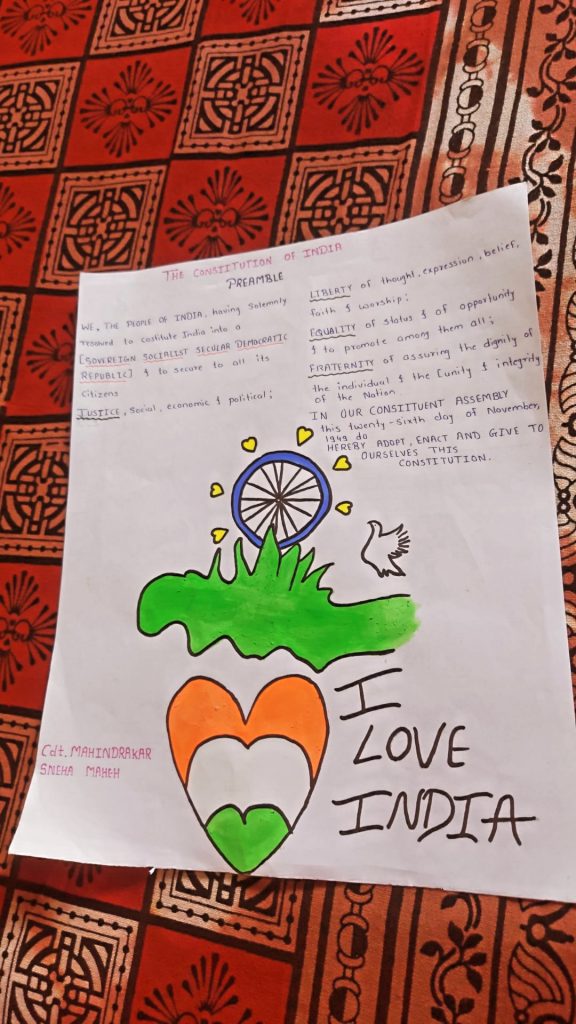 THE CONSTITUTION OF INDIA
PREAMBLE
WE, THE PEOPLE OF INDIA, having Solemnly
resolved to costitute India into a
[SOVEREIGN SOCIALIST SECULAR DEMOCRATIC
REPUBLIC] & to secure to all its
Citizens
JUSTICE, Social, economic & political;
LIBERTY of thought, expression, belief,
faith & worship;
EQUALITY of status & of opportunity
& to promote among them all;
FRATERNITY of assuring the dignity of
the individual & the [unity & integrity
of the Nation.
IN OUR CONSIITUENT ASSEMBLY
this twenty-sixth day of November,
1949 do
HEREBY ADOPT, ENACT AND GIVE TO
OURSELVES THIS
CONSTITUTION.
I
LOVE
INDIA
Cdt. MAHINDRAKAR
SNEHA MAHEH